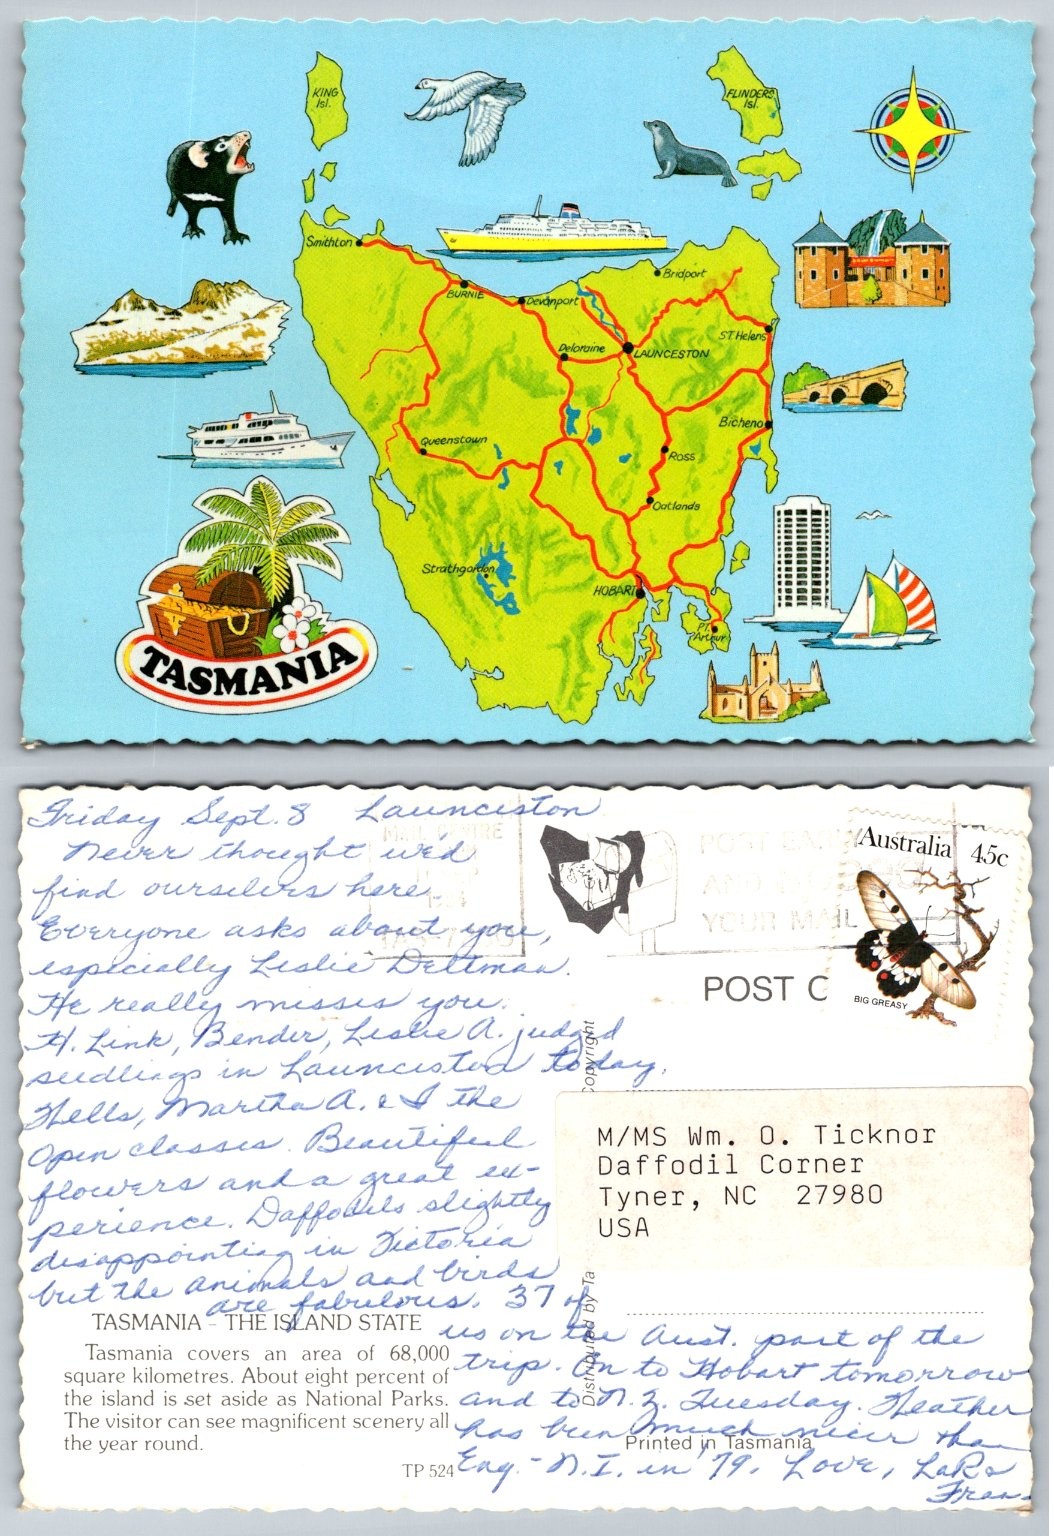 KING
Isl.
FLINDERS
Isl.
Smithton
BURNIE
Devonport
Bridport
Deloraine
LAUNCESTON
ST Helens
Queenstown
Bicheno
Ross
Oatlands
Strathgordon
HOBART
PT.
Arthur
TASMANIA
Friday Sept. 8 Launceston
Never thought we'd
find ourselves here.
Everyone asks about you,
especially Leslie
He really misses you.
H. Link, Bender, Leslie A. judged
seedlings in Launceston today.
Wells, Martha A. & I the
open classes. Beautiful
flowers and a great ex-
perience. Daffodils slightly
disappointing in Victoria
but the animals and birds
are fabulous. 37 of
us on the Aust. part of the
trip. On to Hobart tomorrow
and to N.Z. Tuesday. Weather
has been much nicer than
Eng.-N.I. in '79. Love,
Fran
MAIL CENTRE
POST EARLY
AND
YOUR MAIL
Australia 45c
BIG GREASY
POST C
Copyright
Distributed by Ta
M/MS Wm. O. Ticknor
Daffodil Corner
Tyner, NC 27980
USA
TASMANIA - THE ISLAND STATE
Tasmania covers an area of 68,000
square kilometres. About eight percent of
the island is set aside as National Parks.
The visitor can see magnificent scenery all
the year round.
TP 524
Printed in Tasmania